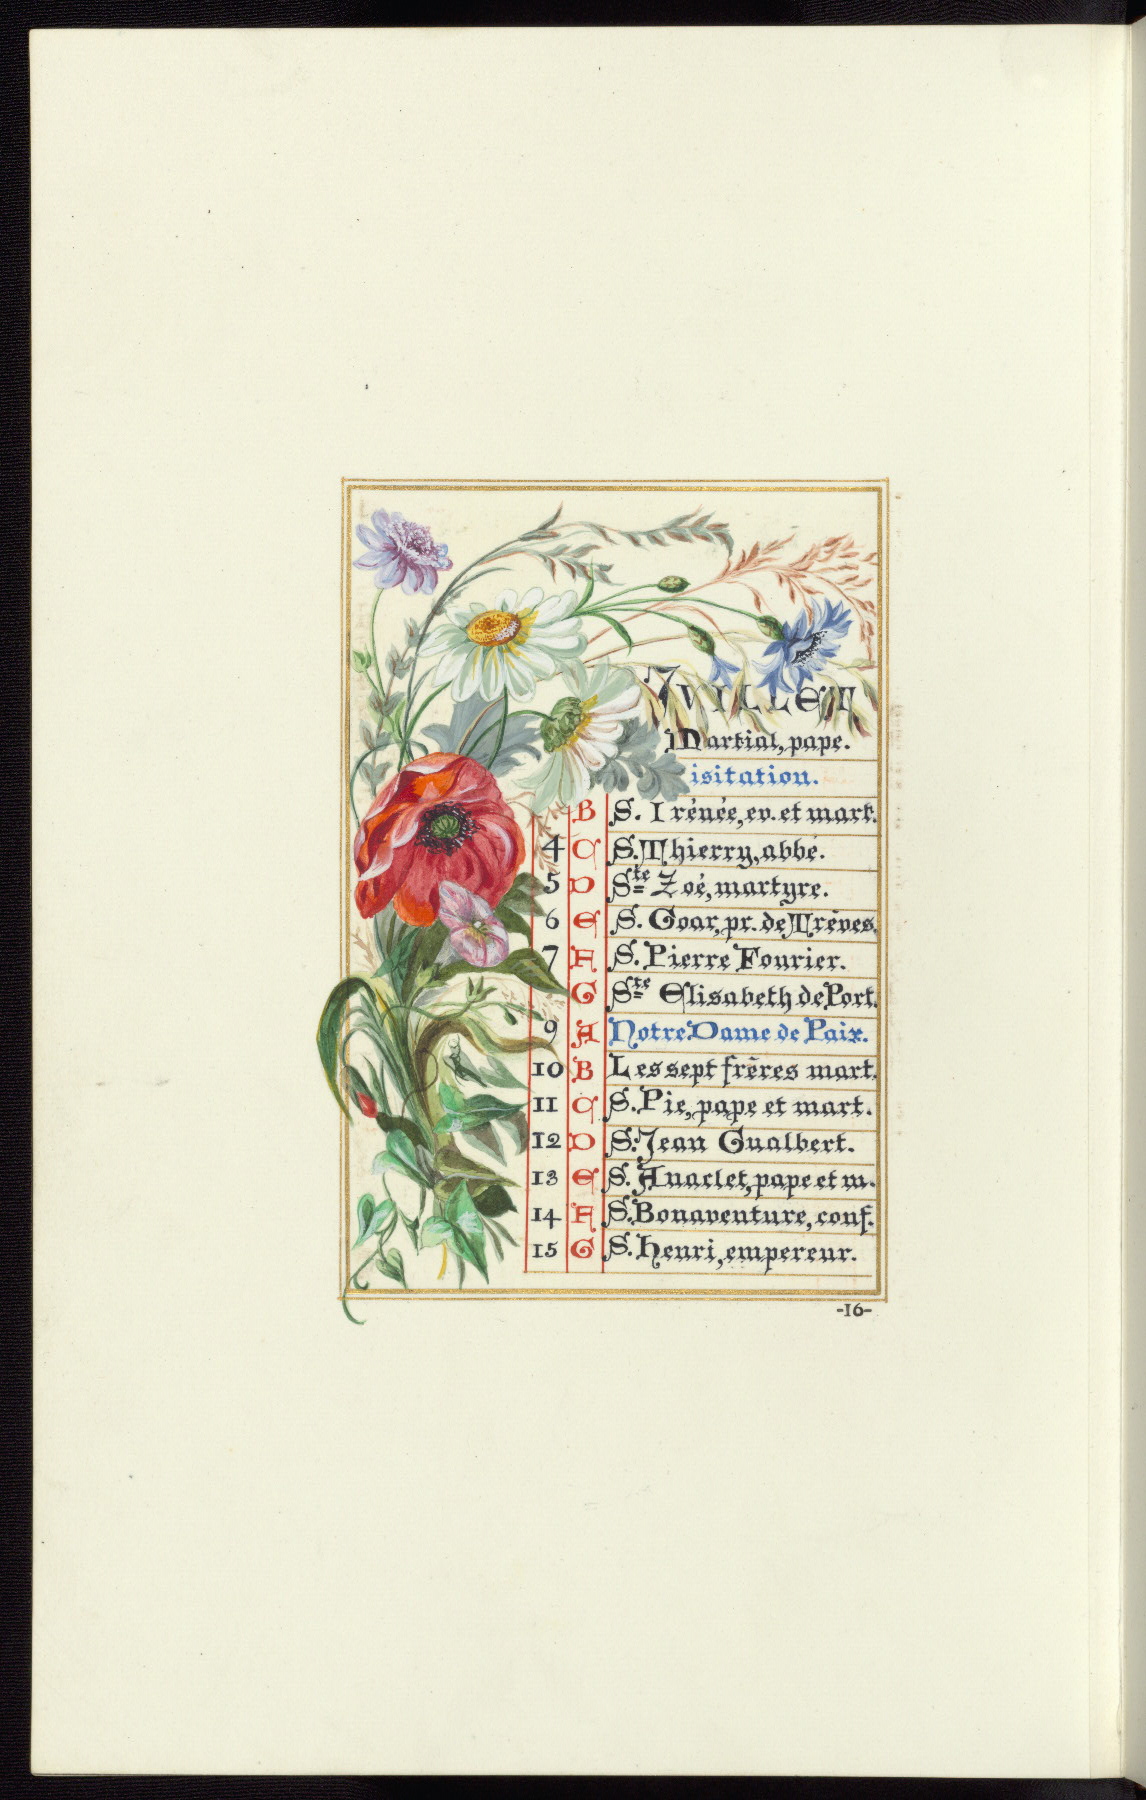 JVILLET
Martial, pape.
isitation.
B S. Irénée, ev. et mart.
4 C S. Thierry, abbé.
5 D Ste Zoé, martyre.
6 E S. Goar, pr. de Trèves.
7 F S. Pierre Fourier.
G Ste Elisabeth de Port.
9 A Notre Dame de Paix.
10 B Les sept frères mart.
11 C S. Pie, pape et mart.
12 D S. Jean Gualbert.
13 E S. Anaclet, pape et m.
14 F S. Bonaventure, conf.
15 G S. Henri, empereur.
-16-